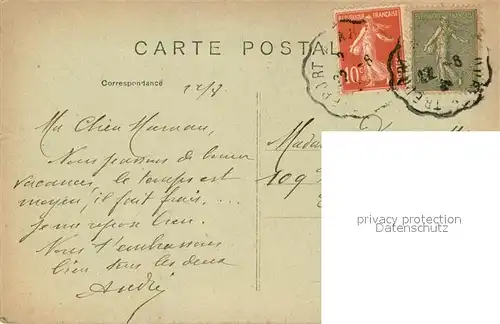 CARTE POSTAL
Correspondance
22/8
Ma Chère Maman,
Nous passons de bonnes
vacances, le temps est
moyen, il fait frais....
je me repose bien.
Nous t'embrassons
bien tous les deux
André
Mada
109
10c
FRANÇAISE
privacy protection
Datenschutz